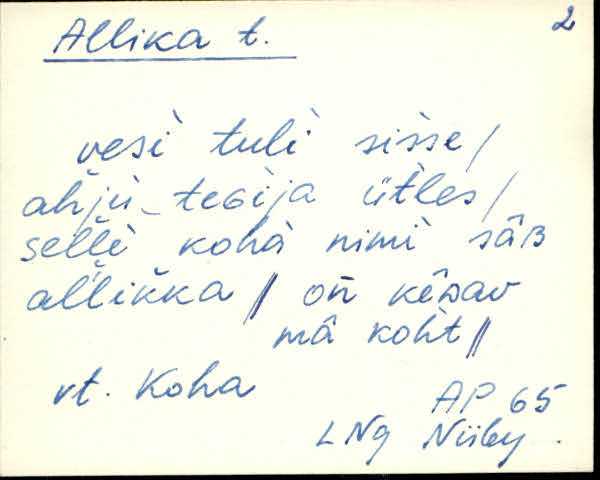 Allika t. 2
vesi tuli sisse/
ahju_teGija ütles/
selle koha nimi sâB
allikka // on kêDav
mâ koht //
vt. Koha
AP 65
LNg Niiby.